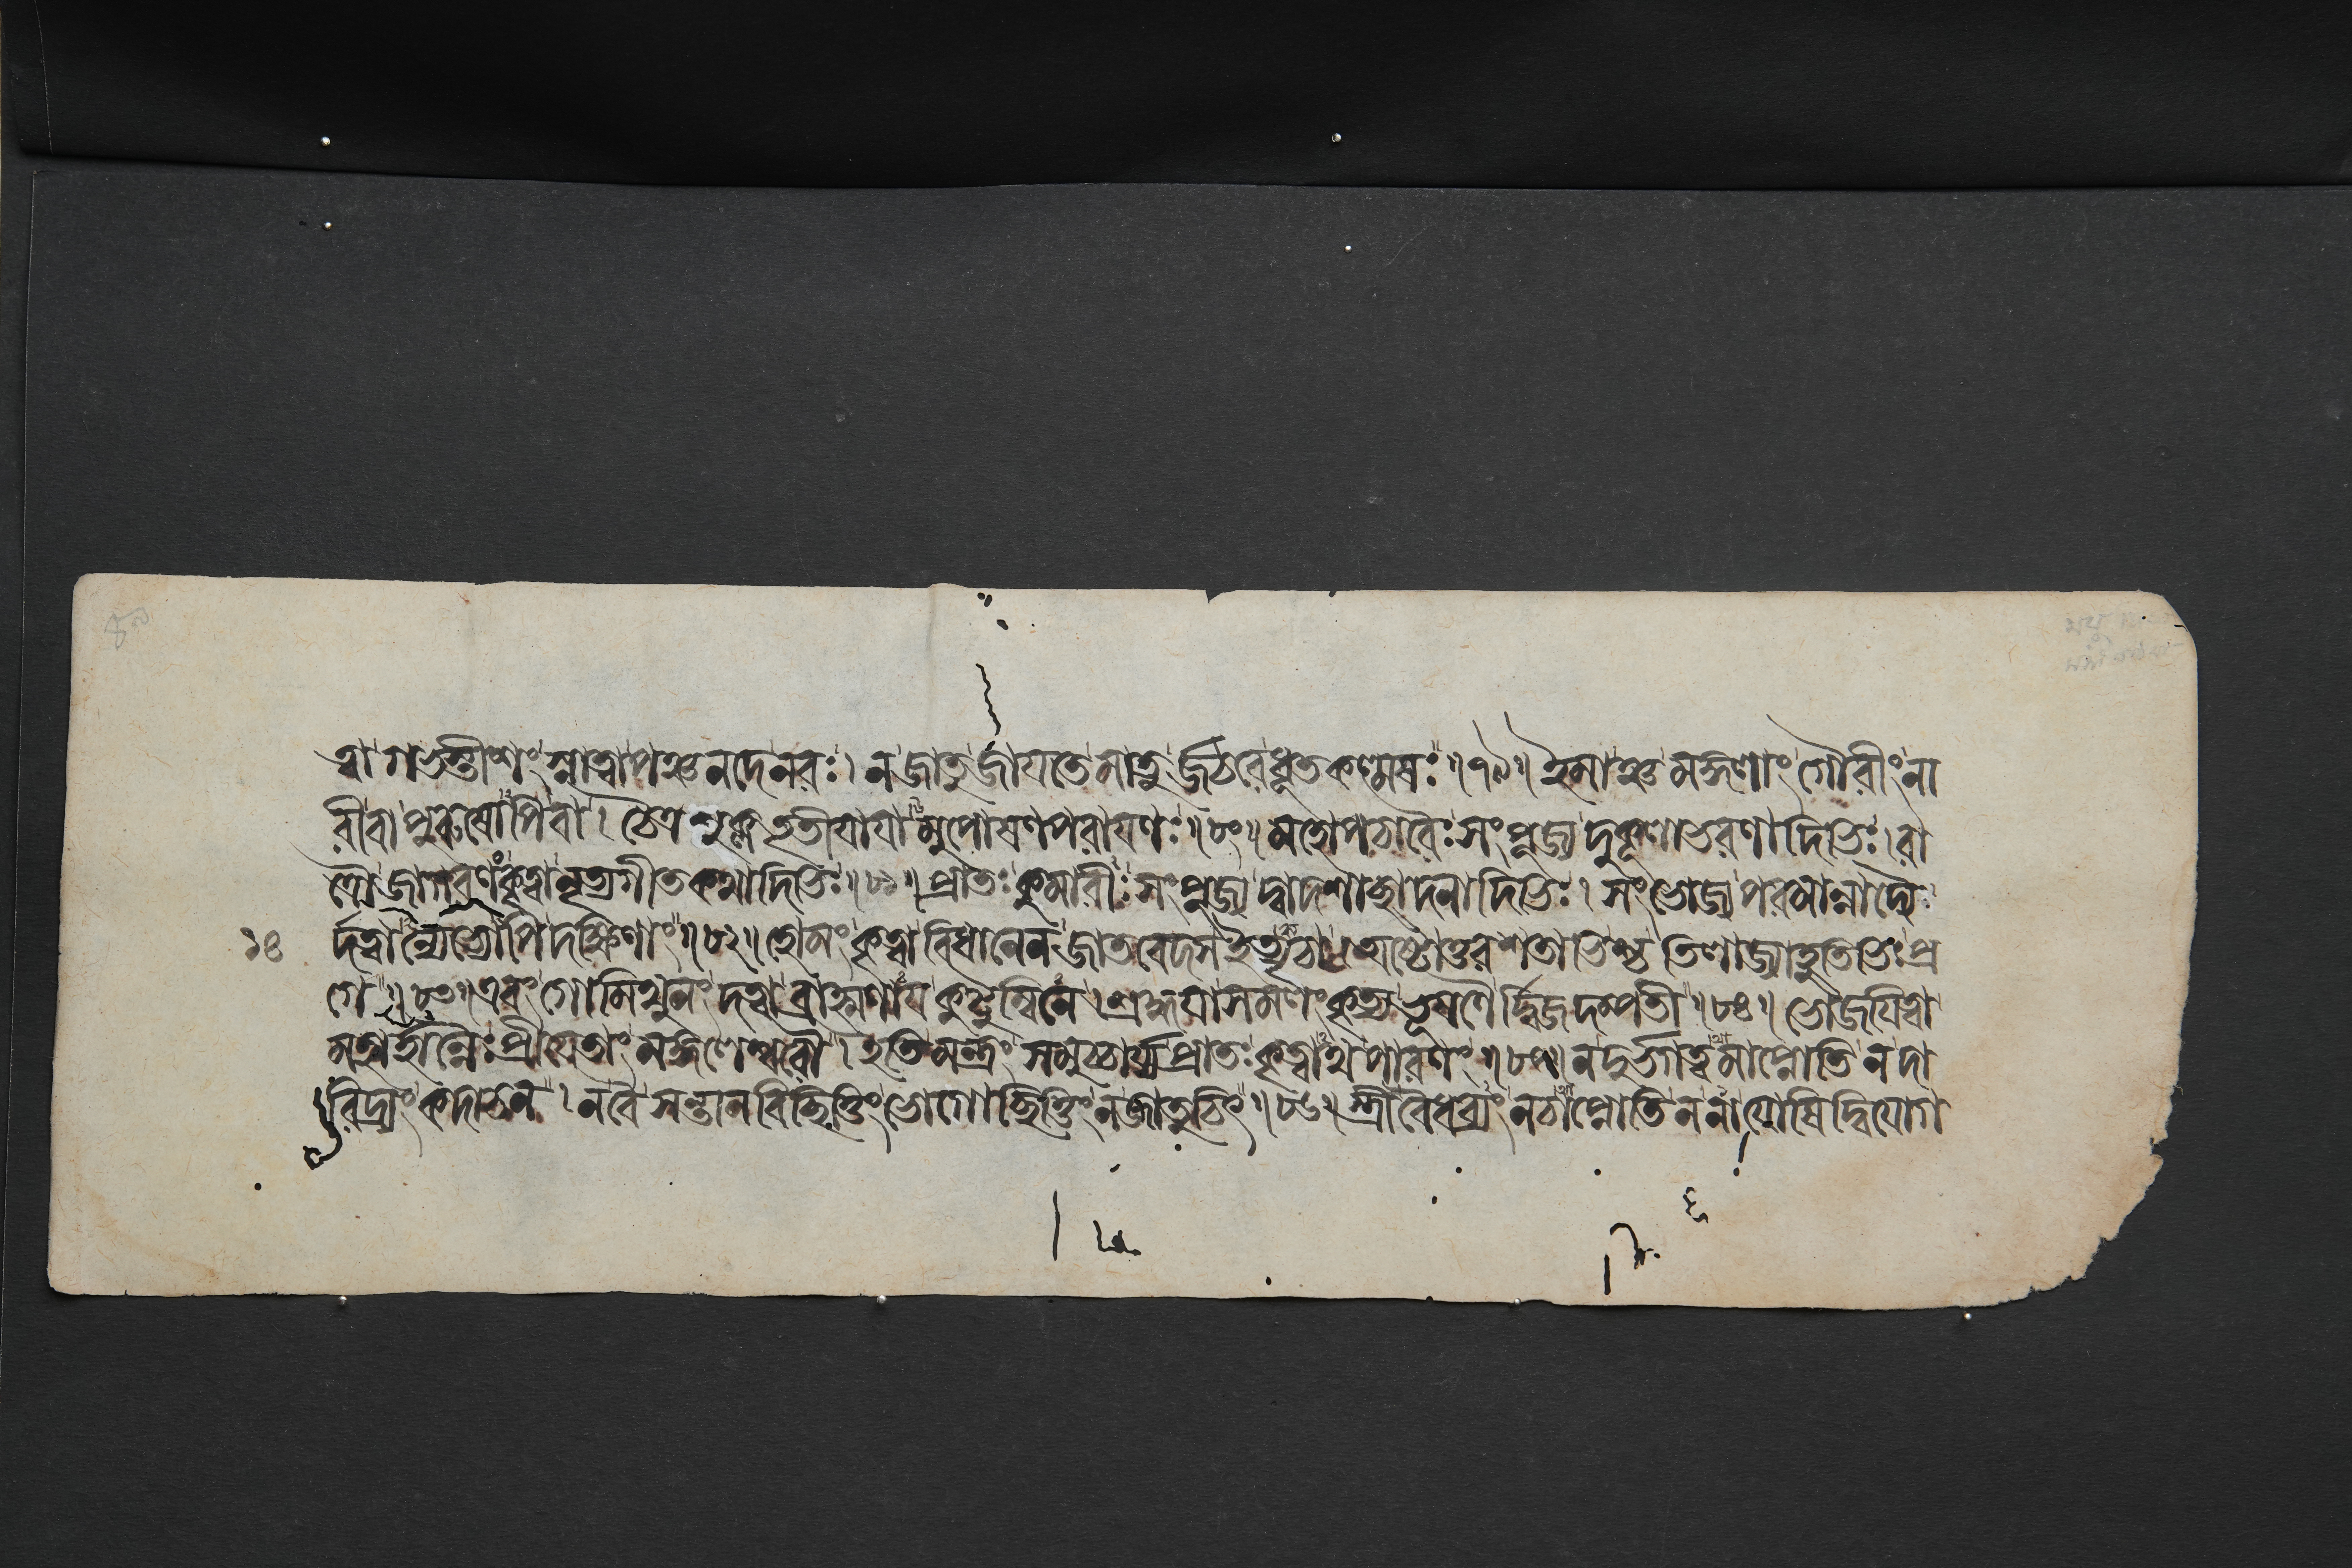 ত্বা গভস্তীশং স্নাত্বা পঞ্চনদে নরঃ। ন জাতু জাযতে মাতুর্জঠরে ধূতকল্মষঃ॥৭৯॥ ইমাঞ্চ মঙ্গলাং গৌরীং না
রী বা পুরুষোপি বা। চৈত্র শুক্ল তৃতীযাযামুপোষণপরাযণঃ॥৮০॥ মহোপচারৈঃ সংপূজ্য দুকূলাভরণাদিভিঃ। রা
ত্রৌ জাগরণং কৃত্বা নৃত্যগীতকথাদিভিঃ॥৮১॥ প্রাতঃ কুমারীঃ সংপূজ্য দ্বাদশাচ্ছাদনাদিভিঃ। সংভোজ্য পরমান্নাদ্যৈ
র্দত্বান্যেভ্যোপি দক্ষিণাং॥৮২॥ হোমং কৃত্বা বিধানেন জাতবেদস ইত্যৃচা। অষ্টোত্তরশতাভিশ্চ তিলাজ্যাহুতিভিঃ প্র
১৪
গে॥৮৩॥ এবং গোমিথুনং দত্ত্বা ব্রাহ্মণায কুটুম্বিনে। শ্রদ্ধযা সমলংকৃত্য ভূষণৈর্দ্বিজদম্পতী॥৮৪॥ ভোজযিত্বা
মহার্হান্নৈঃ প্রীযেতাং মঙ্গলেশ্বরৌ। ইতি মন্ত্রং সমুচ্চার্য্য প্রাতঃ কৃত্বাথ পারণং॥৮৫॥ ন দুর্ভগত্বমাপ্নোতি ন দা
রিদ্র্যং কদাচন। ন বৈ সন্তানবিচ্ছিত্তিং ভোগোচ্ছিত্তিং ন জাতুচিৎ॥৮৬॥ স্ত্রী বৈধব্যং ন চাপ্নোতি ন না যোষিদ্বিযোগ